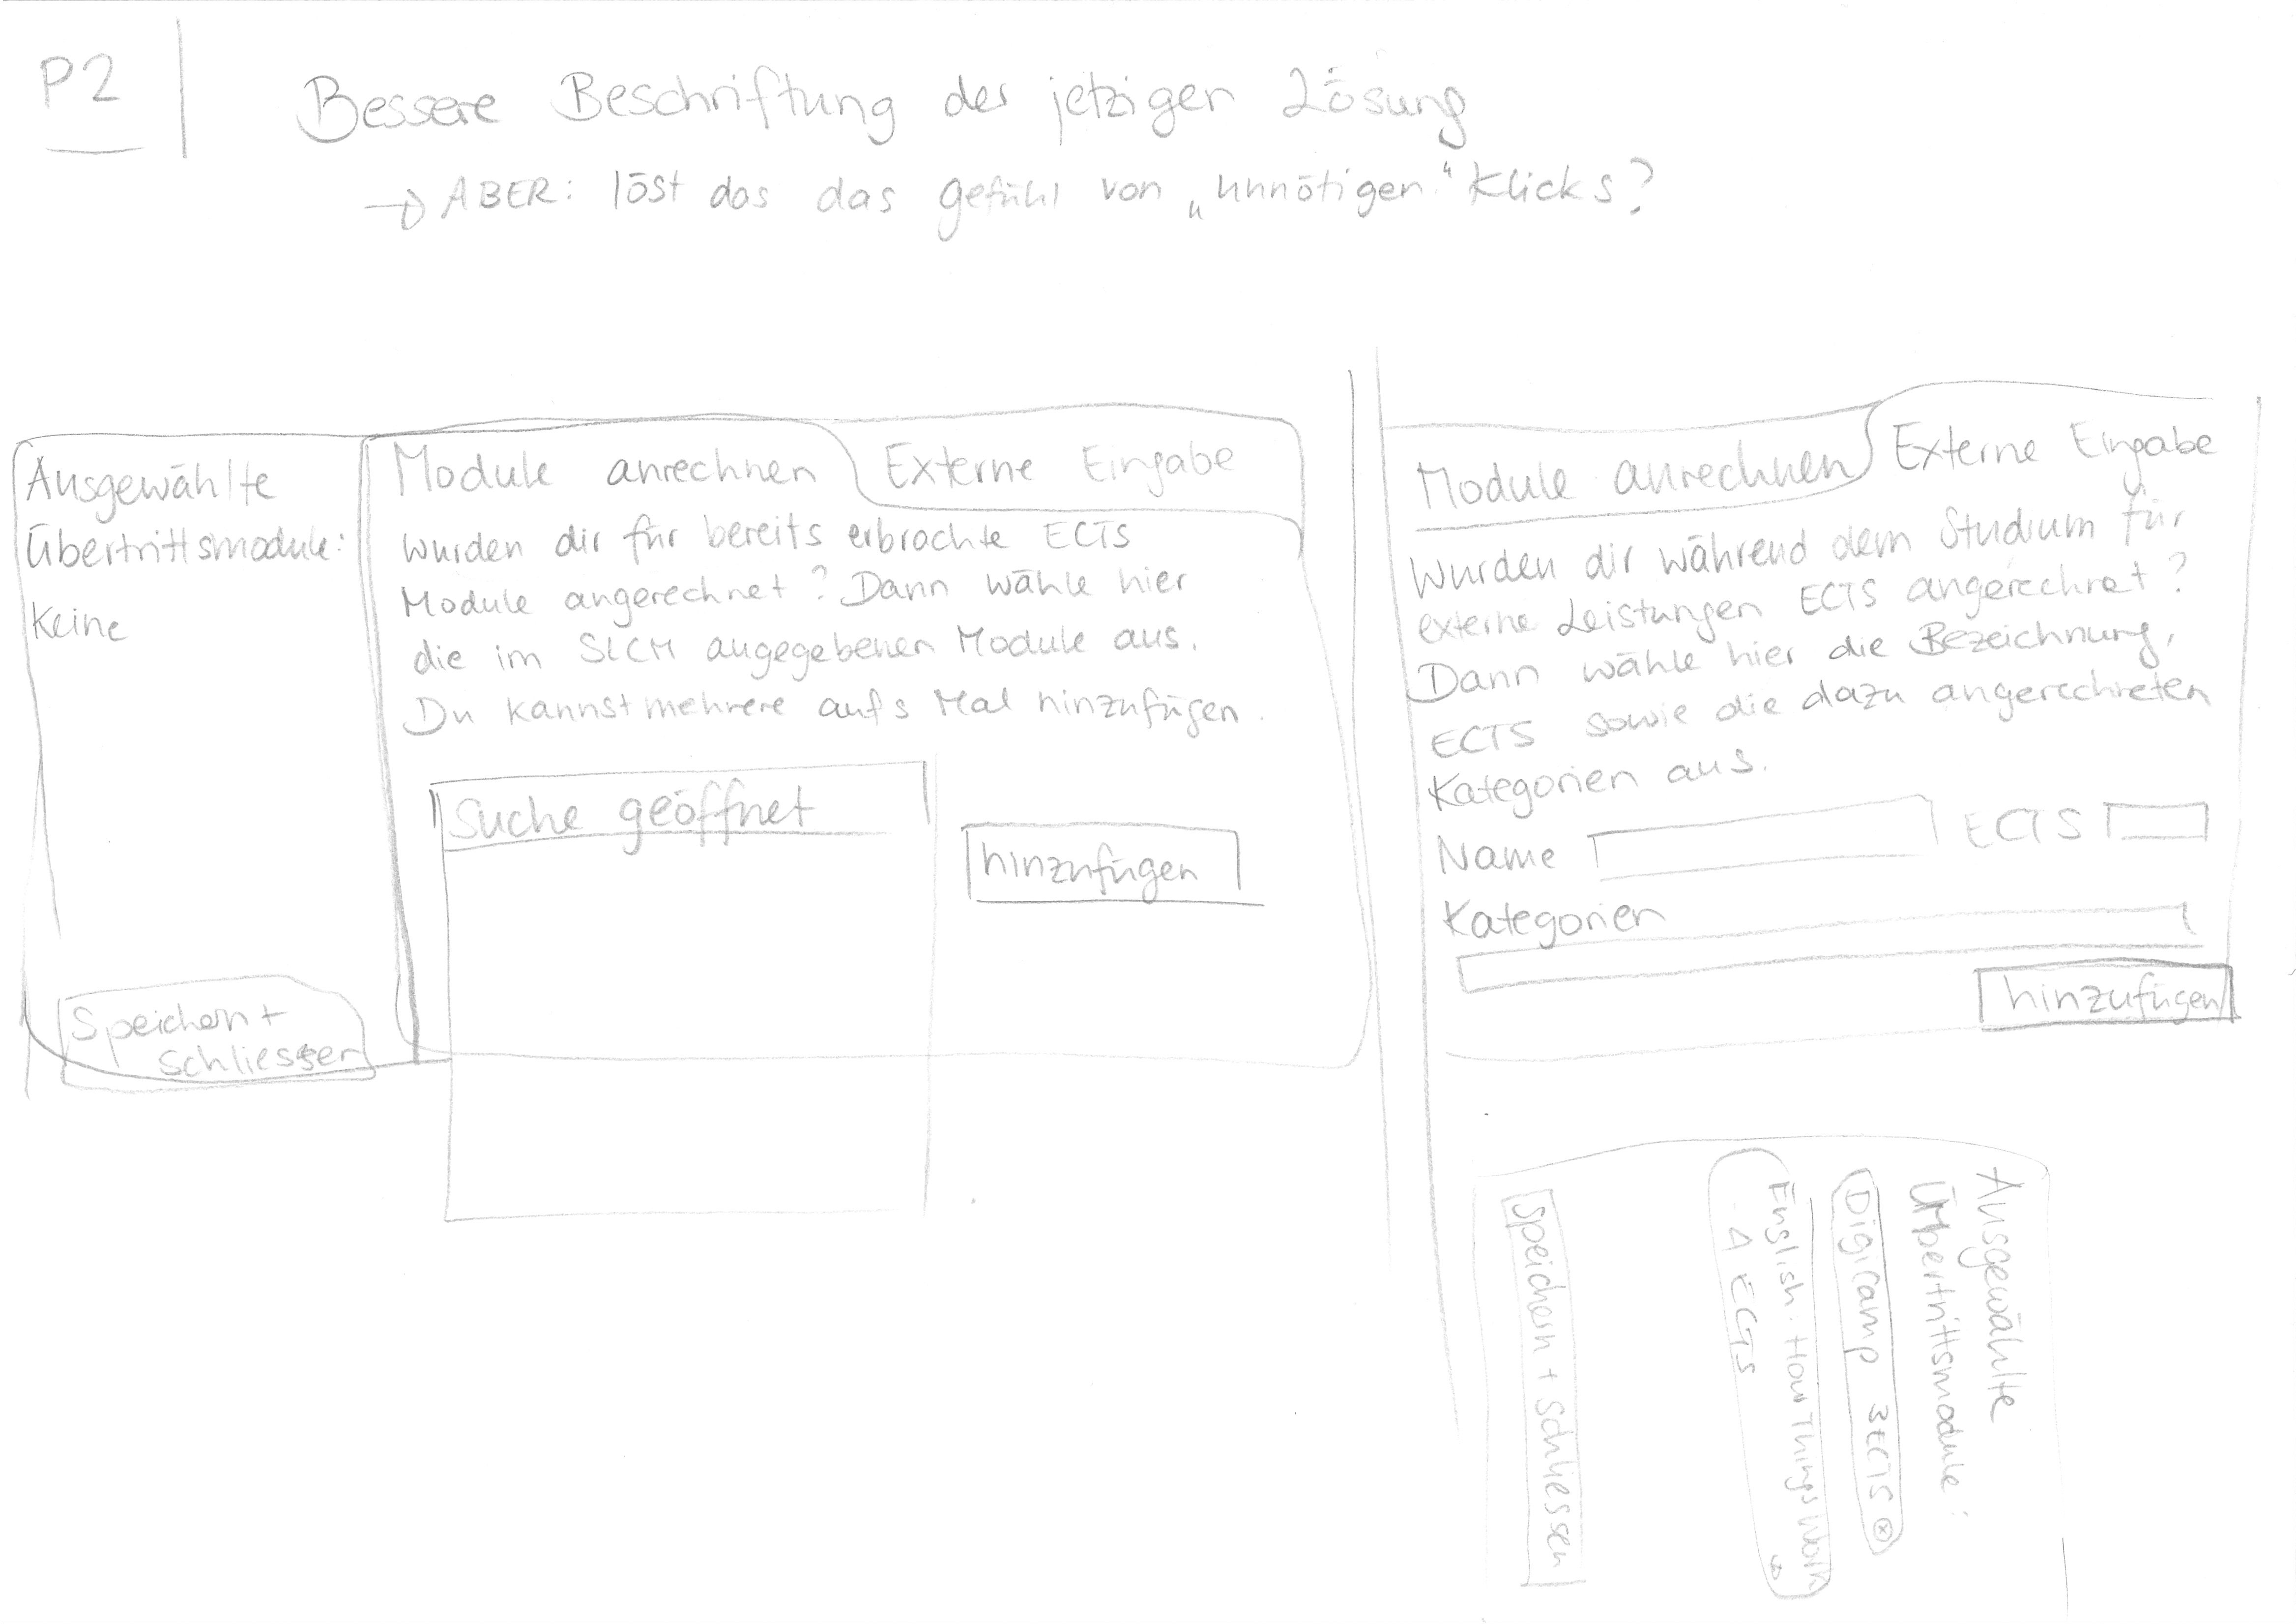 P2
Bessere Beschriftung der jetzigen Lösung
→ ABER: löst das das Gefühl von „unnötigen" Klicks?
Ausgewählte
Übertrittsmodule:
Keine
Speichern +
schliessen
Module anrechnen
Externe Eingabe
Wurden dir für bereits erbrachte ECTS
Module angerechnet? Dann wähle hier
die im SLCM angegebenen Module aus.
Du kannst mehrere aufs Mal hinzufügen.
Suche geöffnet
hinzufügen
Module anrechnen
Externe Eingabe
Wurden dir während dem Studium für
externe Leistungen ECTS angerechnet?
Dann wähle hier die Bezeichnung,
ECTS sowie die dazu angerechneten
Kategorien aus.
Name
ECTS
Kategorien
hinzufügen
Ausgewählte
Übertrittsmodule:
Digicamp 3ECTS ⊗
English: How Things Work
ECTS
Speichern + schliessen